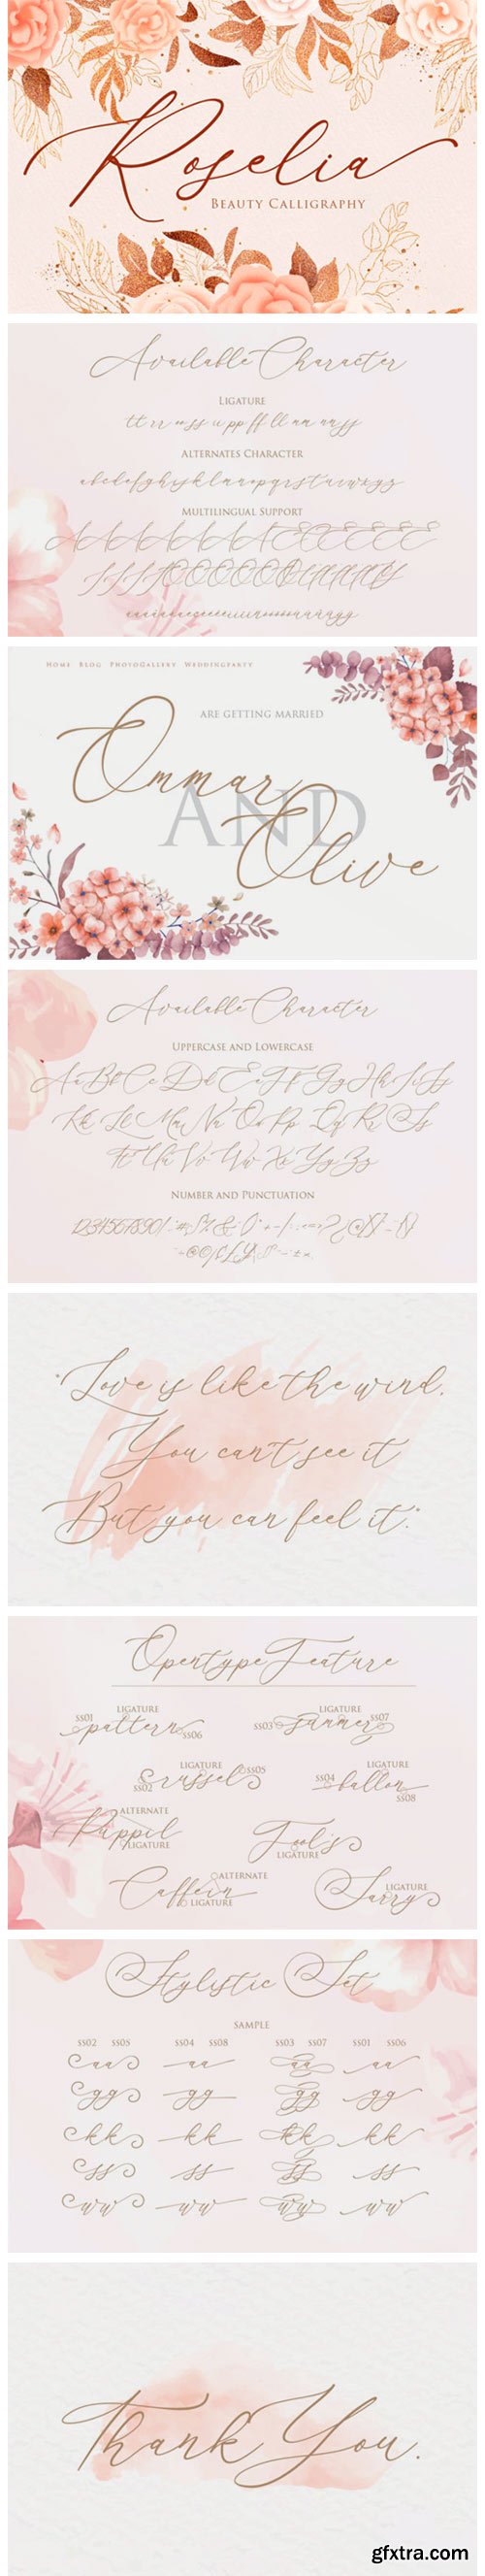 Roselia
Beauty Calligraphy
Available Character
Ligature
Alternates Character
Multilingual Support
Home Blog PhotoGallery WeddingParty
are getting married
Ommar
AND
Olive
Available Character
Uppercase and Lowercase
Aa Bb Cc Dd Ee Ff Gg Hh Ii Jj
Kk Ll Mm Nn Oo Pp Qq Rr Ss
Tt Uu Vv Ww Xx Yy Zz
Number and Punctuation
"Love is like the wind.
You can't see it
But you can feel it."
Opentype Feature
ss01 Ligature Ligature ss07
pattern ss06 ss03 summer
Ligature ss05 Ligature
ss02 russel ss04 ballon ss08
Alternate
Puppil Fool's
Ligature Ligature
Alternate Ligature
Caffein Sarry
Ligature
Stylistic Set
Sample
ss02 ss05 ss04 ss08 ss03 ss07 ss01 ss06
aa aa aa aa
gg gg gg gg
kk kk kk kk
ss ss ss ss
ww ww ww ww
Thank You.
gfxtra.com